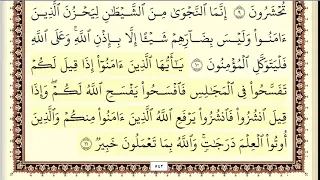 تُحْشَرُونَ ۝٩ إِنَّمَا ٱلنَّجْوَىٰ مِنَ ٱلشَّيْطَٰنِ لِيَحْزُنَ ٱلَّذِينَ
ءَامَنُوا۟ وَلَيْسَ بِضَآرِّهِمْ شَيْـًٔا إِلَّا بِإِذْنِ ٱللَّهِ ۚ وَعَلَى ٱللَّهِ
فَلْيَتَوَكَّلِ ٱلْمُؤْمِنُونَ ۝١٠ يَٰٓأَيُّهَا ٱلَّذِينَ ءَامَنُوٓا۟ إِذَا قِيلَ لَكُمْ
تَفَسَّحُوا۟ فِى ٱلْمَجَٰلِسِ فَٱفْسَحُوا۟ يَفْسَحِ ٱللَّهُ لَكُمْ ۖ وَإِذَا
قِيلَ ٱنشُزُوا۟ فَٱنشُزُوا۟ يَرْفَعِ ٱللَّهُ ٱلَّذِينَ ءَامَنُوا۟ مِنكُمْ وَٱلَّذِينَ
أُوتُوا۟ ٱلْعِلْمَ دَرَجَٰتٍ ۚ وَٱللَّهُ بِمَا تَعْمَلُونَ خَبِيرٌ ۝١١
٥٤٣